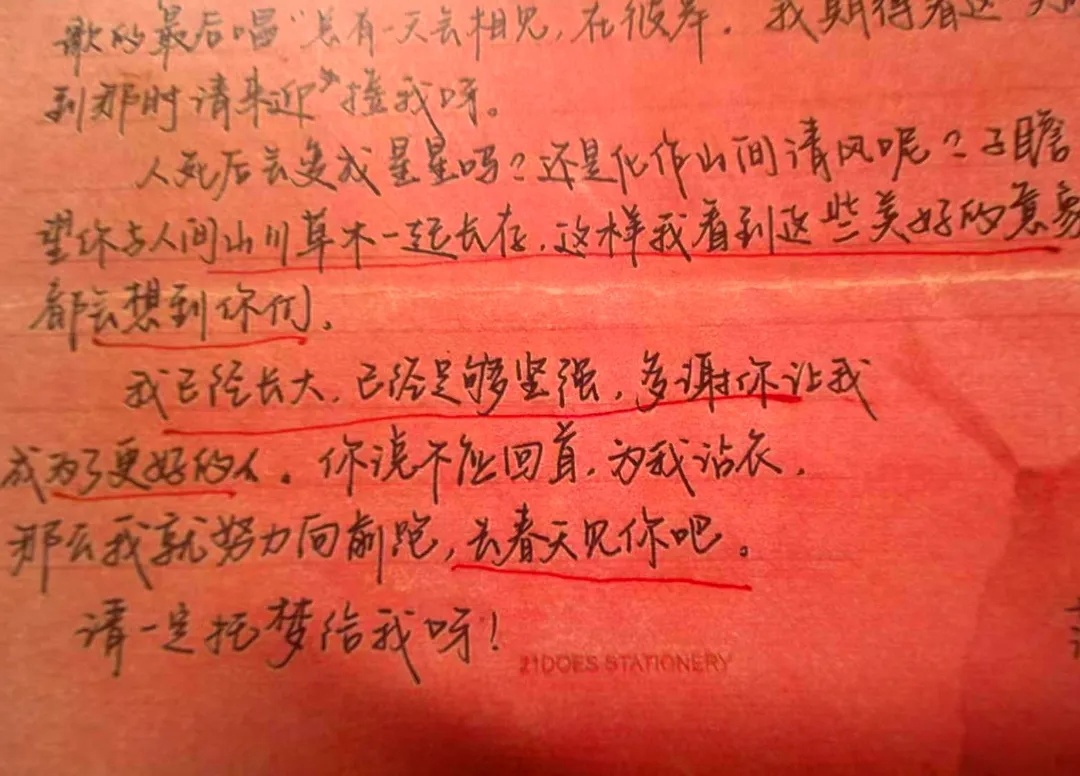 歌的最后唱“总有一天会相见，在彼岸。我期待着这
到那时请来迎接我呀。
人死后会变成星星吗？还是化作山间清风呢？子瞻
望你与人间山川草木一起长存，这样我看到这些美好的意象
都会想到你们。
我已经长大，已经足够坚强，多谢你让我
成为了更好的人。你说不应回首，为我沾衣，
那么我就努力向前跑，去春天见你吧。
请一定托梦给我呀！
21DOES STATIONERY